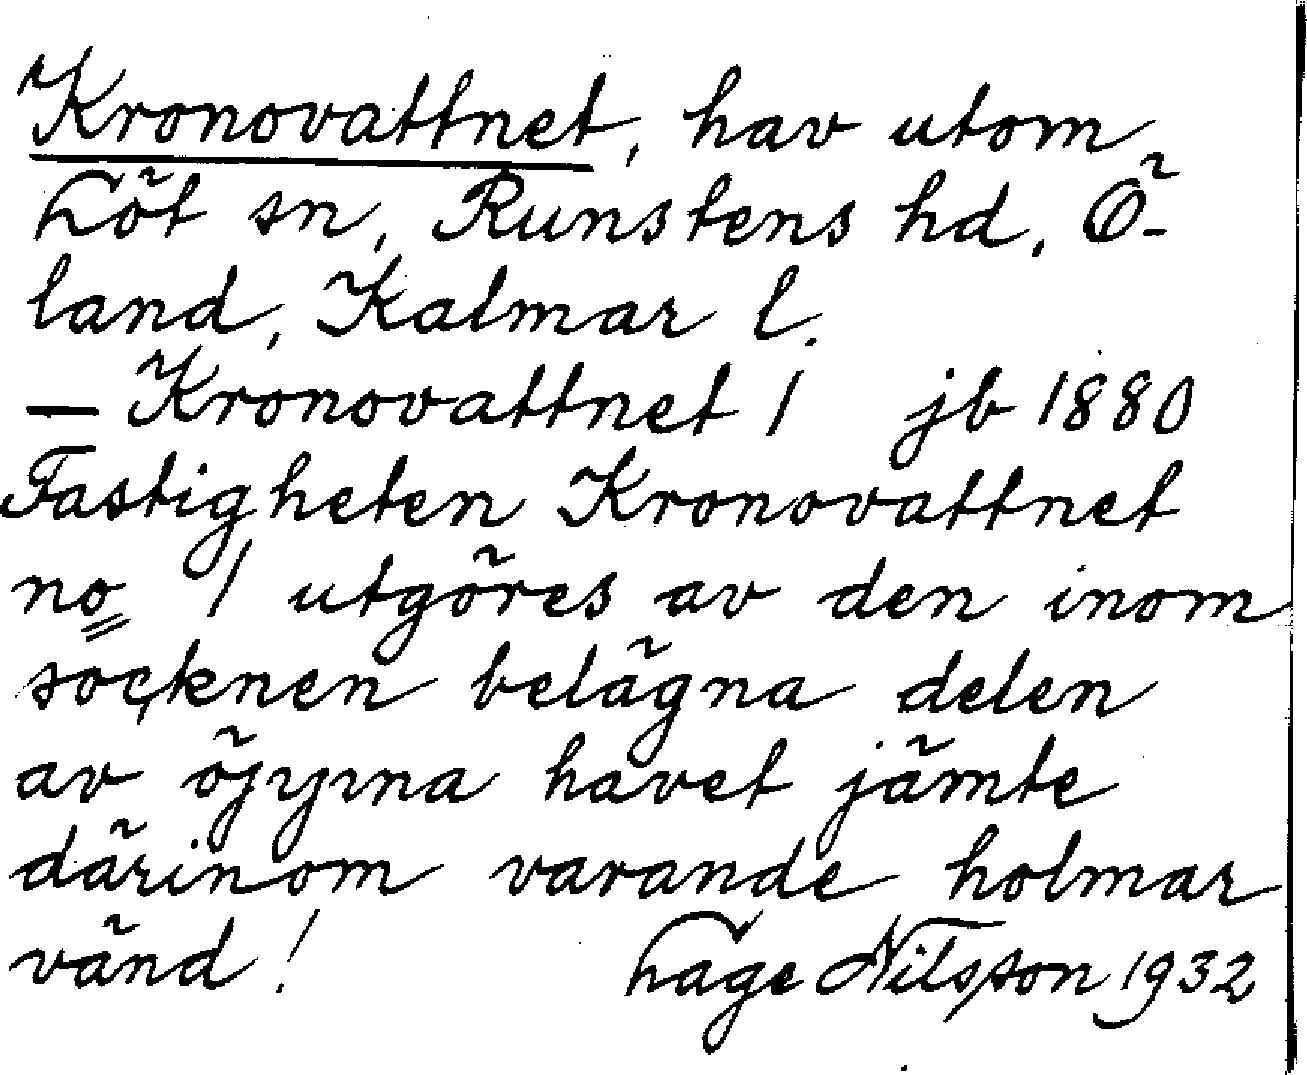 Kronovattnet, hav utom
Löt sn, Runstens hd, Ö-
land, Kalmar l.
— Kronovattnet 1 jb 1880
Fastigheten Kronovattnet
no 1 utgöres av den inom
socknen belägna delen
av öppna havet jämte
därinom varande holmar
vänd! Lage Nilsson 1932